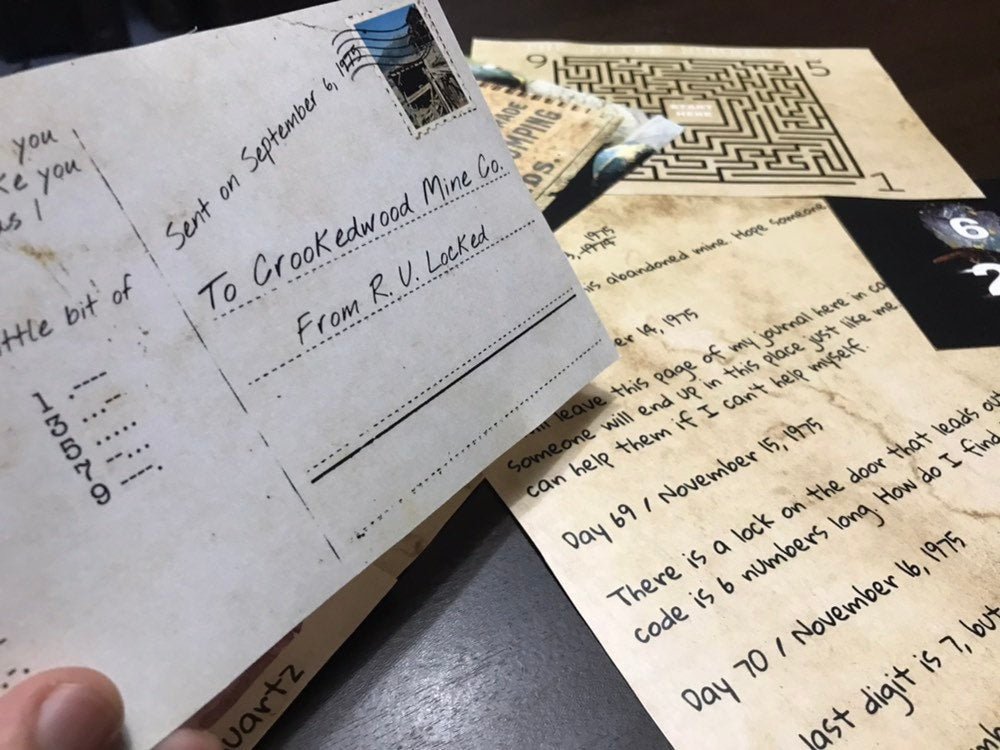 you
ke you
as!
ttle bit of
1 .----
3 ...--
5 .....
7 --...
9 ----.
Sent on September 6, 1975
To Crookedwood Mine Co.
From R. U. Locked
uartz
9
5
START
HERE
1
MPING
DS.
6
2
1975
is abandoned mine. Hope someone
er 14, 1975
leave this page of my journal here in ca
someone will end up in this place just like me
can help them if I can't help myself.
Day 69 / November 15, 1975
There is a lock on the door that leads out
code is 6 numbers long. How do I find
Day 70 / November 16, 1975
last digit is 7, but